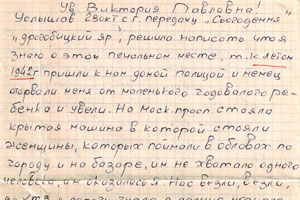 Ув Виктория Павловна!
Услышав 28окт с.г. передачу „Сьогодення"
„дрогобицкий яр", решила написать что
знаю о этом печальном месте, т.к летом
1942г пришли к нам домой полицай и немец
оторвали меня от маленького годовалого ре-
бенка и увели. На моск. просп стояла
крытая машина в которой стояли
женщины, которых поймали в облавах по
городу и на базаре, им не хватало одного
человека, им сказилось я. Нас везли, везли,
знала